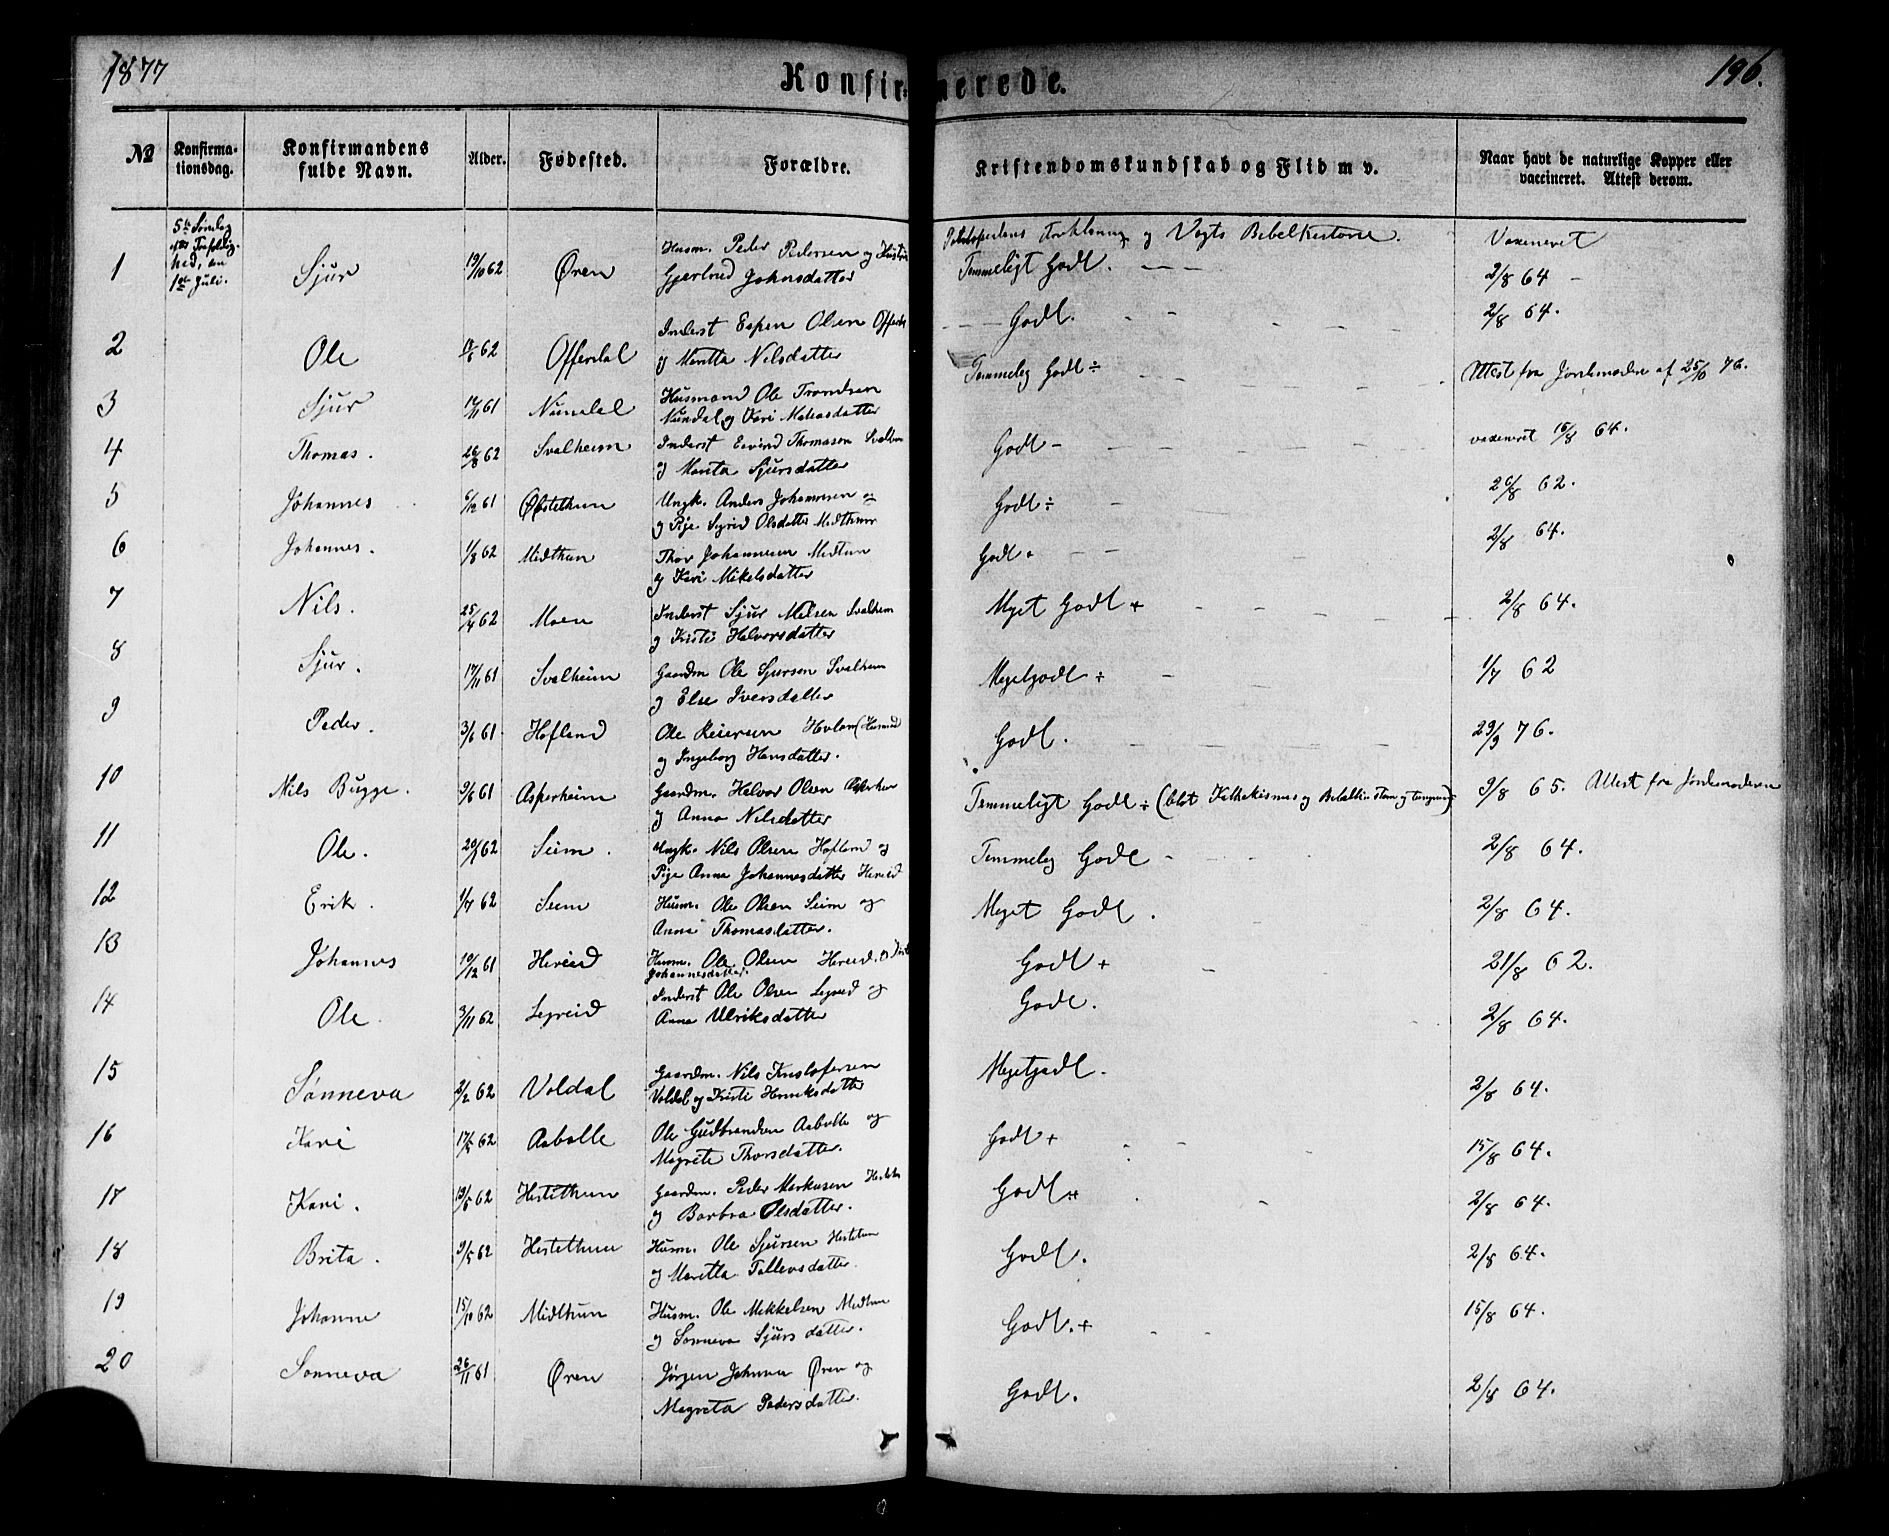 1877
Konfirmerede.
196.
№
Konfirma-
tionsdag.
Konfirmandens
fulde Navn.
Alder.
Fødested.
Forældre.
Kristendomskundskab og Flid m v.
Naar havt de naturlige Kopper eller
vaccineret. Attest derom.
5te Søndag
1ste Juli.
1 Sjur 19/10 62 Øren Husm. Peder Pedersen og Hustru
Gjertrud Johnsdatter
Forklaring og Vogts Bibelhistorie.
Temmeligt Godt.
Vaxeneret
2/8 64
2 Ole 62 Offerdal Inderst Espen Olsen
og Maritta Nilsdatter
Godt. 2/8 64.
3 Sjur 61 Nundal Husmand Ole Trondsen
Nundal og Kari
Temmelig Godt ÷ Attest fra Jordemoder af 76.
4 Thomas. 26/8 62 Svalheim Inderst Eivind Thomasen
og Marita Sjursdatter
Godt - vaxeneret 16/8 64.
5 Johannes 6/12 61 Ungk. Anders Johannesen og
og Pige Sigrid Olsdatter Midthun
Godt ÷ 26/8 62.
6 Johannes. 1/8 62 Midthun Thor Johannesen Midtun
og Kari Mikelsdatter
Godt + 2/8 64.
7 Nils. 25/4 62 Moen Inderst Sjur Nielsen Svalheim
og Kristi Halvorsdatter
Meget Godt + 2/8 64.
8 Sjur. 17/11 61 Svalheim Gaardm Ole Sjursen Svalheim
og Else Iversdatter
Megetgodt ÷ 1/7 62
9 Peder. 3/6 61 Hofland Ole Reiersen
og Ingeborg Hansdatter.
Godt. 29/9 76.
10 Nils Bugge. 9/6 61 Asperheim Gaardm. Halvor Olsen
og Anna Nilsdatter
Temmeligt Godt ÷ (blot
9/8 65. Attest fra Jordemoderen
11 Ole. 62 Seim. Ungk. Nils Olsen Hofland og
Pige Anna Johannesdatter Hereid
Temmelig Godt 2/8 64.
12 Erik. 1/7 62 Seim Husm. Ole Olsen Seim og
Anna Thomasdatter.
Meget Godt. 2/8 64.
13 Johannes 10/12 61 Hereid Husm. Ole Olsen Hereid
Johannesdatter.
Godt + 21/8 62.
14 Ole. 3/11 62 Legreid Inderst Ole Olsen Legreid og
Anna Ulriksdatter
Godt. 2/8 64.
15 Sønneva 2/2 62 Voldal Gaardm. Nils Kristofersen
Voldal og Kristi Henriksdatter
Megetgodt. 2/8 64.
16 Kari 17/5 62 Aabølle Ole Gudbrandsen Aabølle og
Magrete Thorsdatter.
Godt + 15/8 64.
17 Kari. 19/5 62 Hestethun Gaardm. Peder Markusen
og Barbra Olsdatter.
Godt + 2/8 64.
18 Brita. 9/5 62 Hestethun Husm. Ole Sjursen Hestetun
og Maritta Tollevsdatter.
Godt. 2/8 64.
19 Johanne 15/10 62 Midthun Husm. Ole Mikkelsen Midtun
og Sønneva Sjursdatter.
Godt. + 15/8 64.
20 Sønneva 26/11 61 Øren Jørgen Johnsen Øren og
Magreta Pedersdatter.
Godt. 2/8 64.